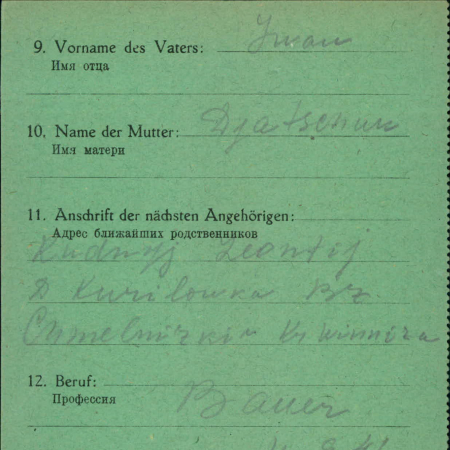 9. Vorname des Vaters: Iwan
Имя отца
10. Name der Mutter: Djatschuk
Имя матери
11. Anschrift der nächsten Angehörigen:
Адрес ближайших родственников
Rudnyj Leontij
D Kurilowka Bz.
Chmelnizki Kr Winniza
12. Beruf: Bauer
Профессия